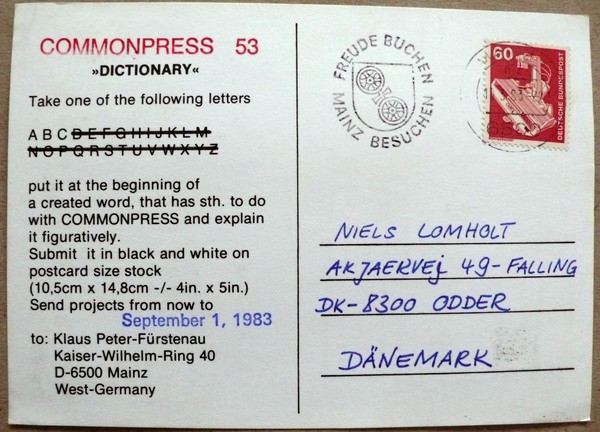 COMMONPRESS 53
»DICTIONARY«
Take one of the following letters
A B C D E F G H I J K L M
N O P Q R S T U V W X Y Z
put it at the beginning of
a created word, that has sth. to do
with COMMONPRESS and explain
it figuratively.
Submit it in black and white on
postcard size stock
(10,5cm x 14,8cm -/- 4in. x 5in.)
Send projects from now to
September 1, 1983
to: Klaus Peter-Fürstenau
Kaiser-Wilhelm-Ring 40
D-6500 Mainz
West-Germany
FREUDE BUCHEN
MAINZ BESUCHEN
60
DEUTSCHE BUNDESPOST
NIELS LOMHOLT
AKJAERVEj 49-FALLING
DK-8300 ODDER
DÄNEMARK